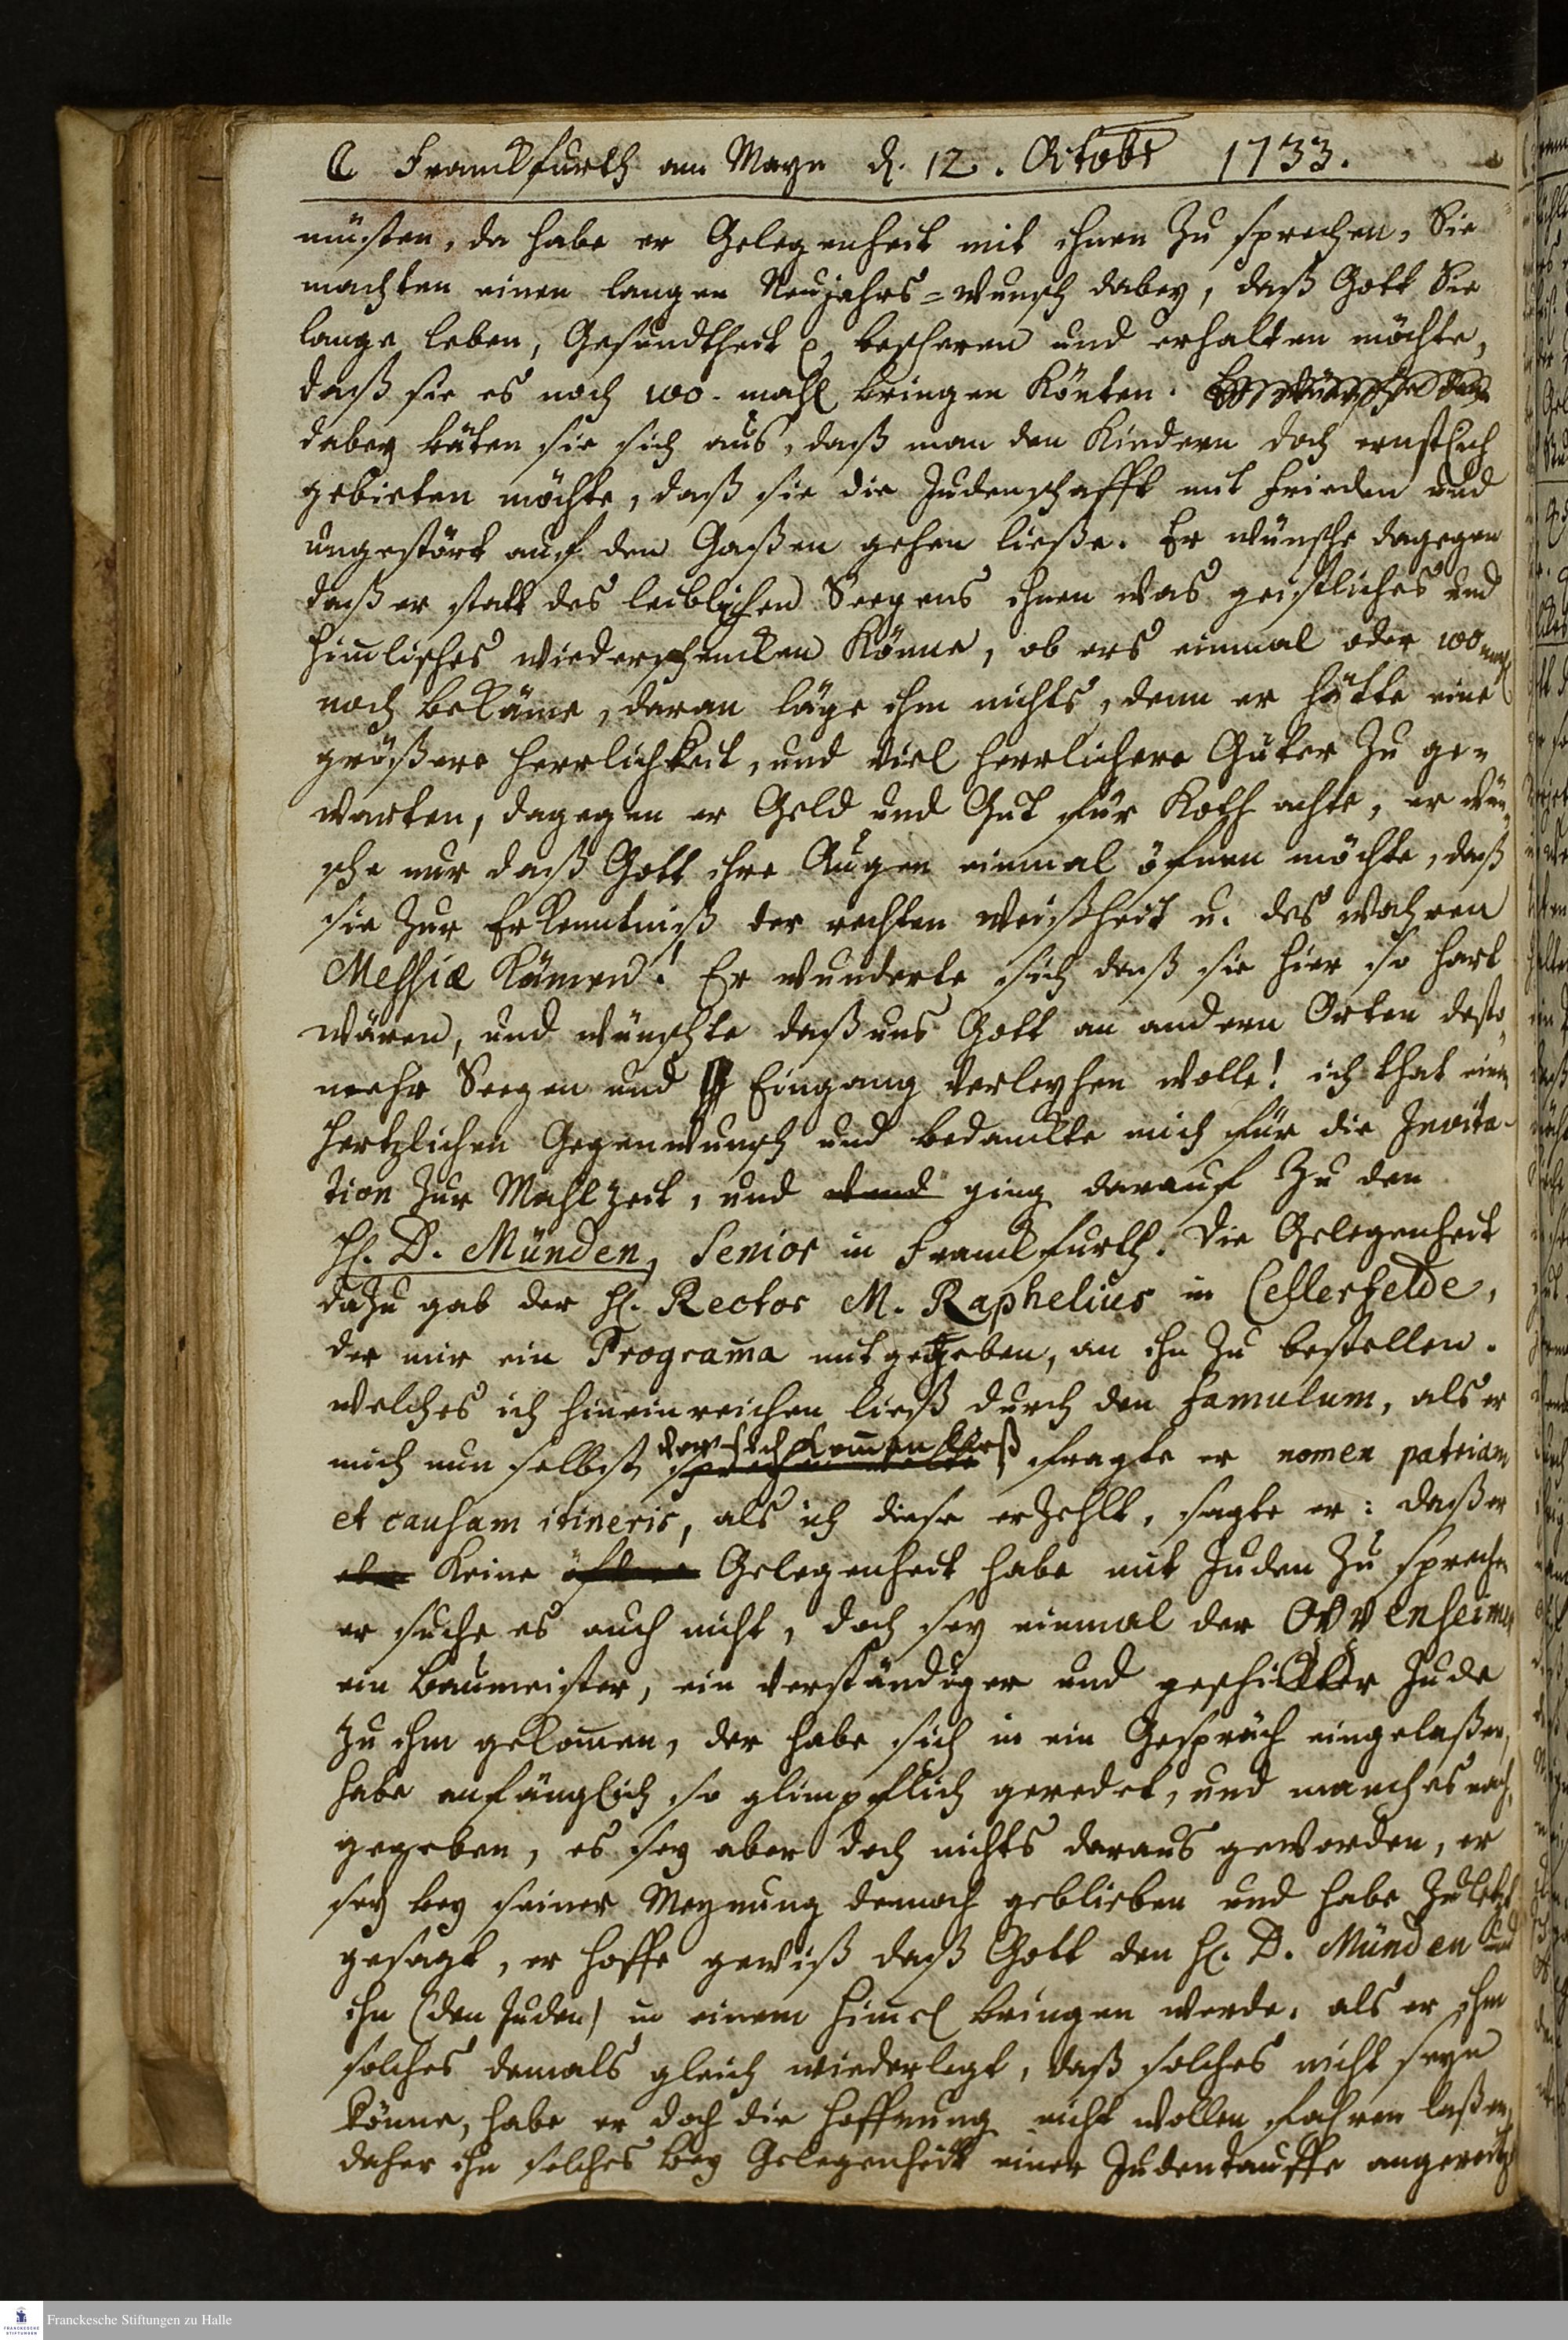 ☾ Franckfurth am Mayn d. 12. Octobr 1733.
müsten, da habe er Gelegenheit mit ihnen zu sprechen, Sie
machten einen langen Neujahrs=wunsch dabey, daß Gott Sie
lange leben, Gesundtheit bescheren und erhalten möchte,
daß sie es noch 100. mahl bringen könten.
dabey bäten sie sich aus, daß man den Kindern doch ernstlich
gebieten möchte, daß sie die Judenschafft mit Frieden und
ungestört auf den Gaßen gehen ließe. Er wünsche dagegen
daß er statt des leiblichen Seegens ihnen was geistliches und
himlisches wiederschencken könne, ob ers einmal oder 100 mahl
noch bekäme, daran läge ihm nichts, denn er hätte eine
größere Herrlichkeit, und viel herrlichere Güter zu ge=
warten, dagegen er Geld und Gut für Koth achte, er wün=
sche nur daß Gott ihre Augen einmal öfnen möchte, daß
sie zur Erkenntniß der rechten Weißheit u. des wahren
Messiæ kämen! Er wunderte sich daß sie hier so hart
wären, und wünschte daß uns Gott an andern Orten desto
mehr Seegen und Eingang verleyhen wolle! ich that einen
hertzlichen Gegenwunsch und bedanckte mich für die Invita-
tion zur Mahlzeit, und ging darauf zu den
H. D. Münden, Senior in Franckfurth. Die Gelegenheit
dazu gab der H. Rector M. Raphelius in Cellerfelde,
der mir ein Programa mitgegeben, an ihn zu bestellen.
welches ich hineinreichen ließ durch den Famulum, als er
mich nun selbst vor sich komen ließ, fragte er nomen patriam
et causam itineris, als ich diese erzehlt, sagte er: daß er
keine Gelegenheit habe mit Juden zu sprechen
er suche es auch nicht, doch sey einmal der Oppenheimer
ein Baumeister, ein verständiger und geschickter Jude
zu ihm gekomen, der habe sich in ein Gespräch eingelaßen,
habe anfänglich so glimpflich geredet, und manches nach=
gegeben, es sey aber doch nichts daraus geworden, er
sey bey seiner Meynung dennoch geblieben und habe zuletzt
gesagt, er hoffe gewiß daß Gott den H. D. Münden und
ihn (den Juden) in einem Himel bringen werde. als er ihm
solches damals gleich wiederlegt, daß solches nicht seyn
könne, habe er doch die Hoffnung nicht wollen fahren laßen,
daher ihn solches bey Gelegenheit einer Judentauffe
Franckesche Stiftungen zu Halle